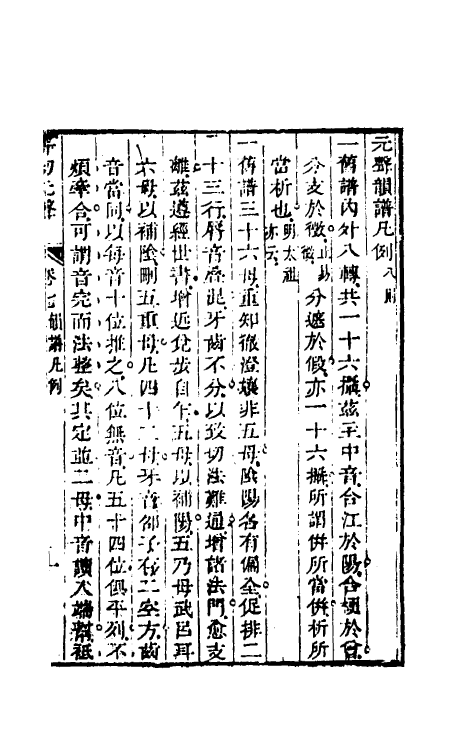 元聲韻譜凡例八則
一舊譜內外八轉共一十六攝茲主中音合江於陽合
分支於徵止攝分遮於假亦一十六攝所謂併所當併析所
當析也明太祖亦云
一舊譜三十六母重知徹澄孃非五母陰陽各有偏全促排二
十三行唇音叠混牙齒不分以致切法難通增諸法門愈支
離茲遵經世書增近兌步自午五母以補陽五乃母武呂耳
六母以補陰刪五重母凡四十二母牙音
音當同以每音十位推之八位無音凡五十四位俱平列不
煩牽合可謂音完而法整矣其定並二母中音讀入端幫祇
卷七韻譜凡例